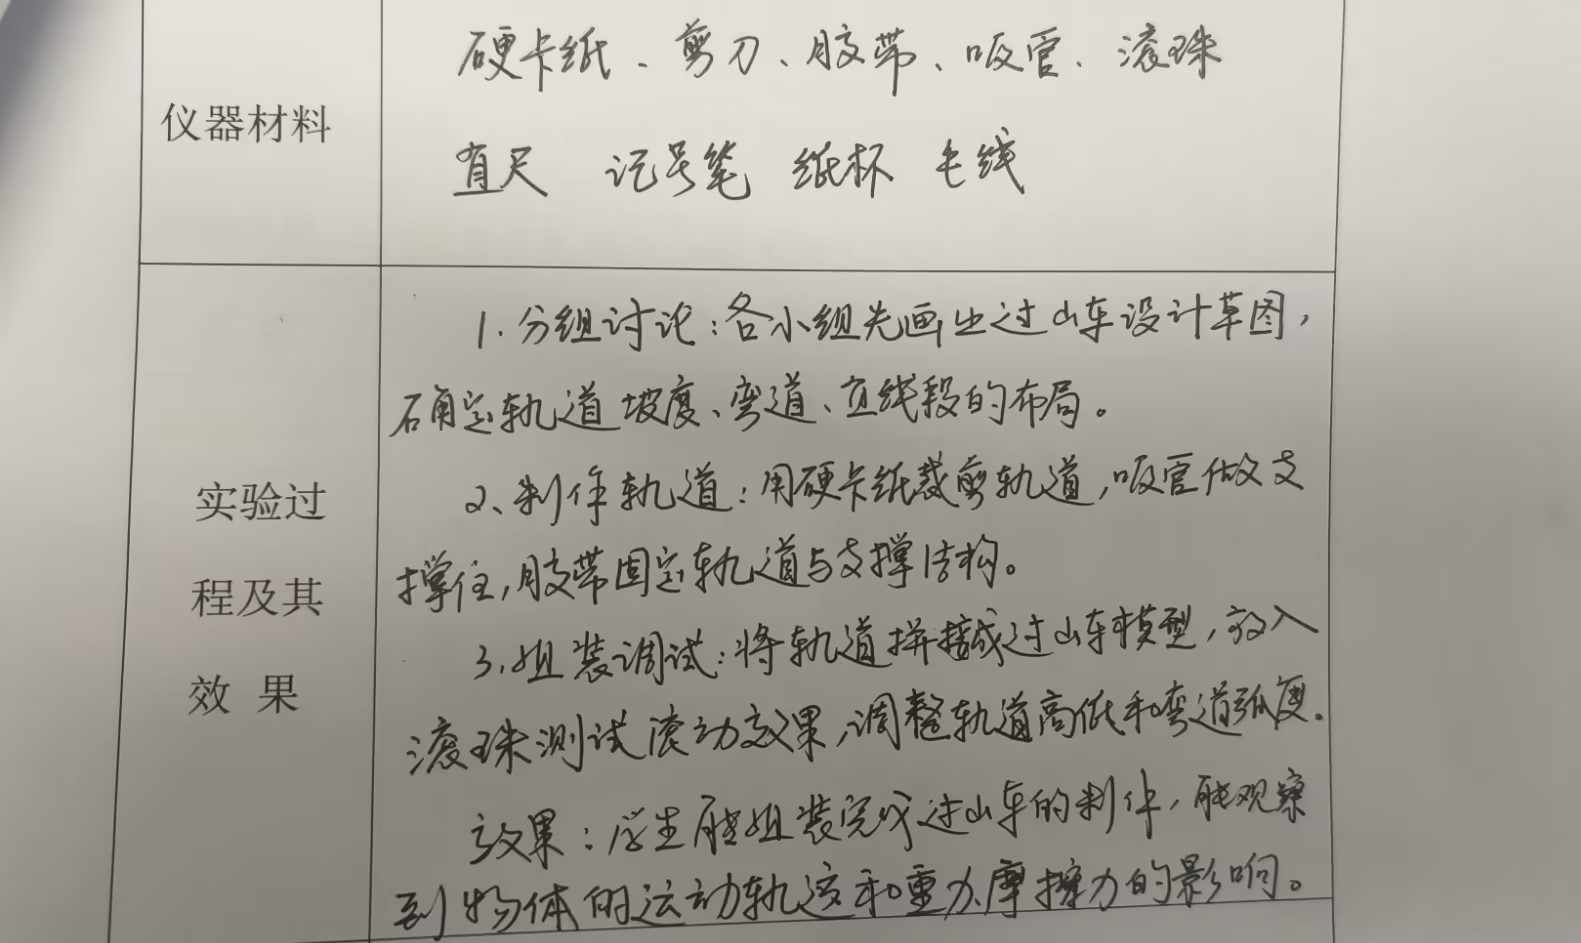 硬卡纸、剪刀、胶带、吸管、滚珠
仪器材料
直尺 记号笔 纸杯 毛线
1.分组讨论：各小组先画出过山车设计草图，
确定轨道坡度、弯道、直线段的布局。
2、制作轨道：用硬卡纸裁剪轨道，吸管做支
撑住，胶带固定轨道与支撑结构。
3.组装调试：将轨道拼接成过山车模型，放入
滚珠测试滚动效果，调整轨道高低和弯道弧度.
效果：学生能组装完成过山车的制作，能观察
到物体的运动轨迹和重力、摩擦力的影响。
实验过
程及其
效 果